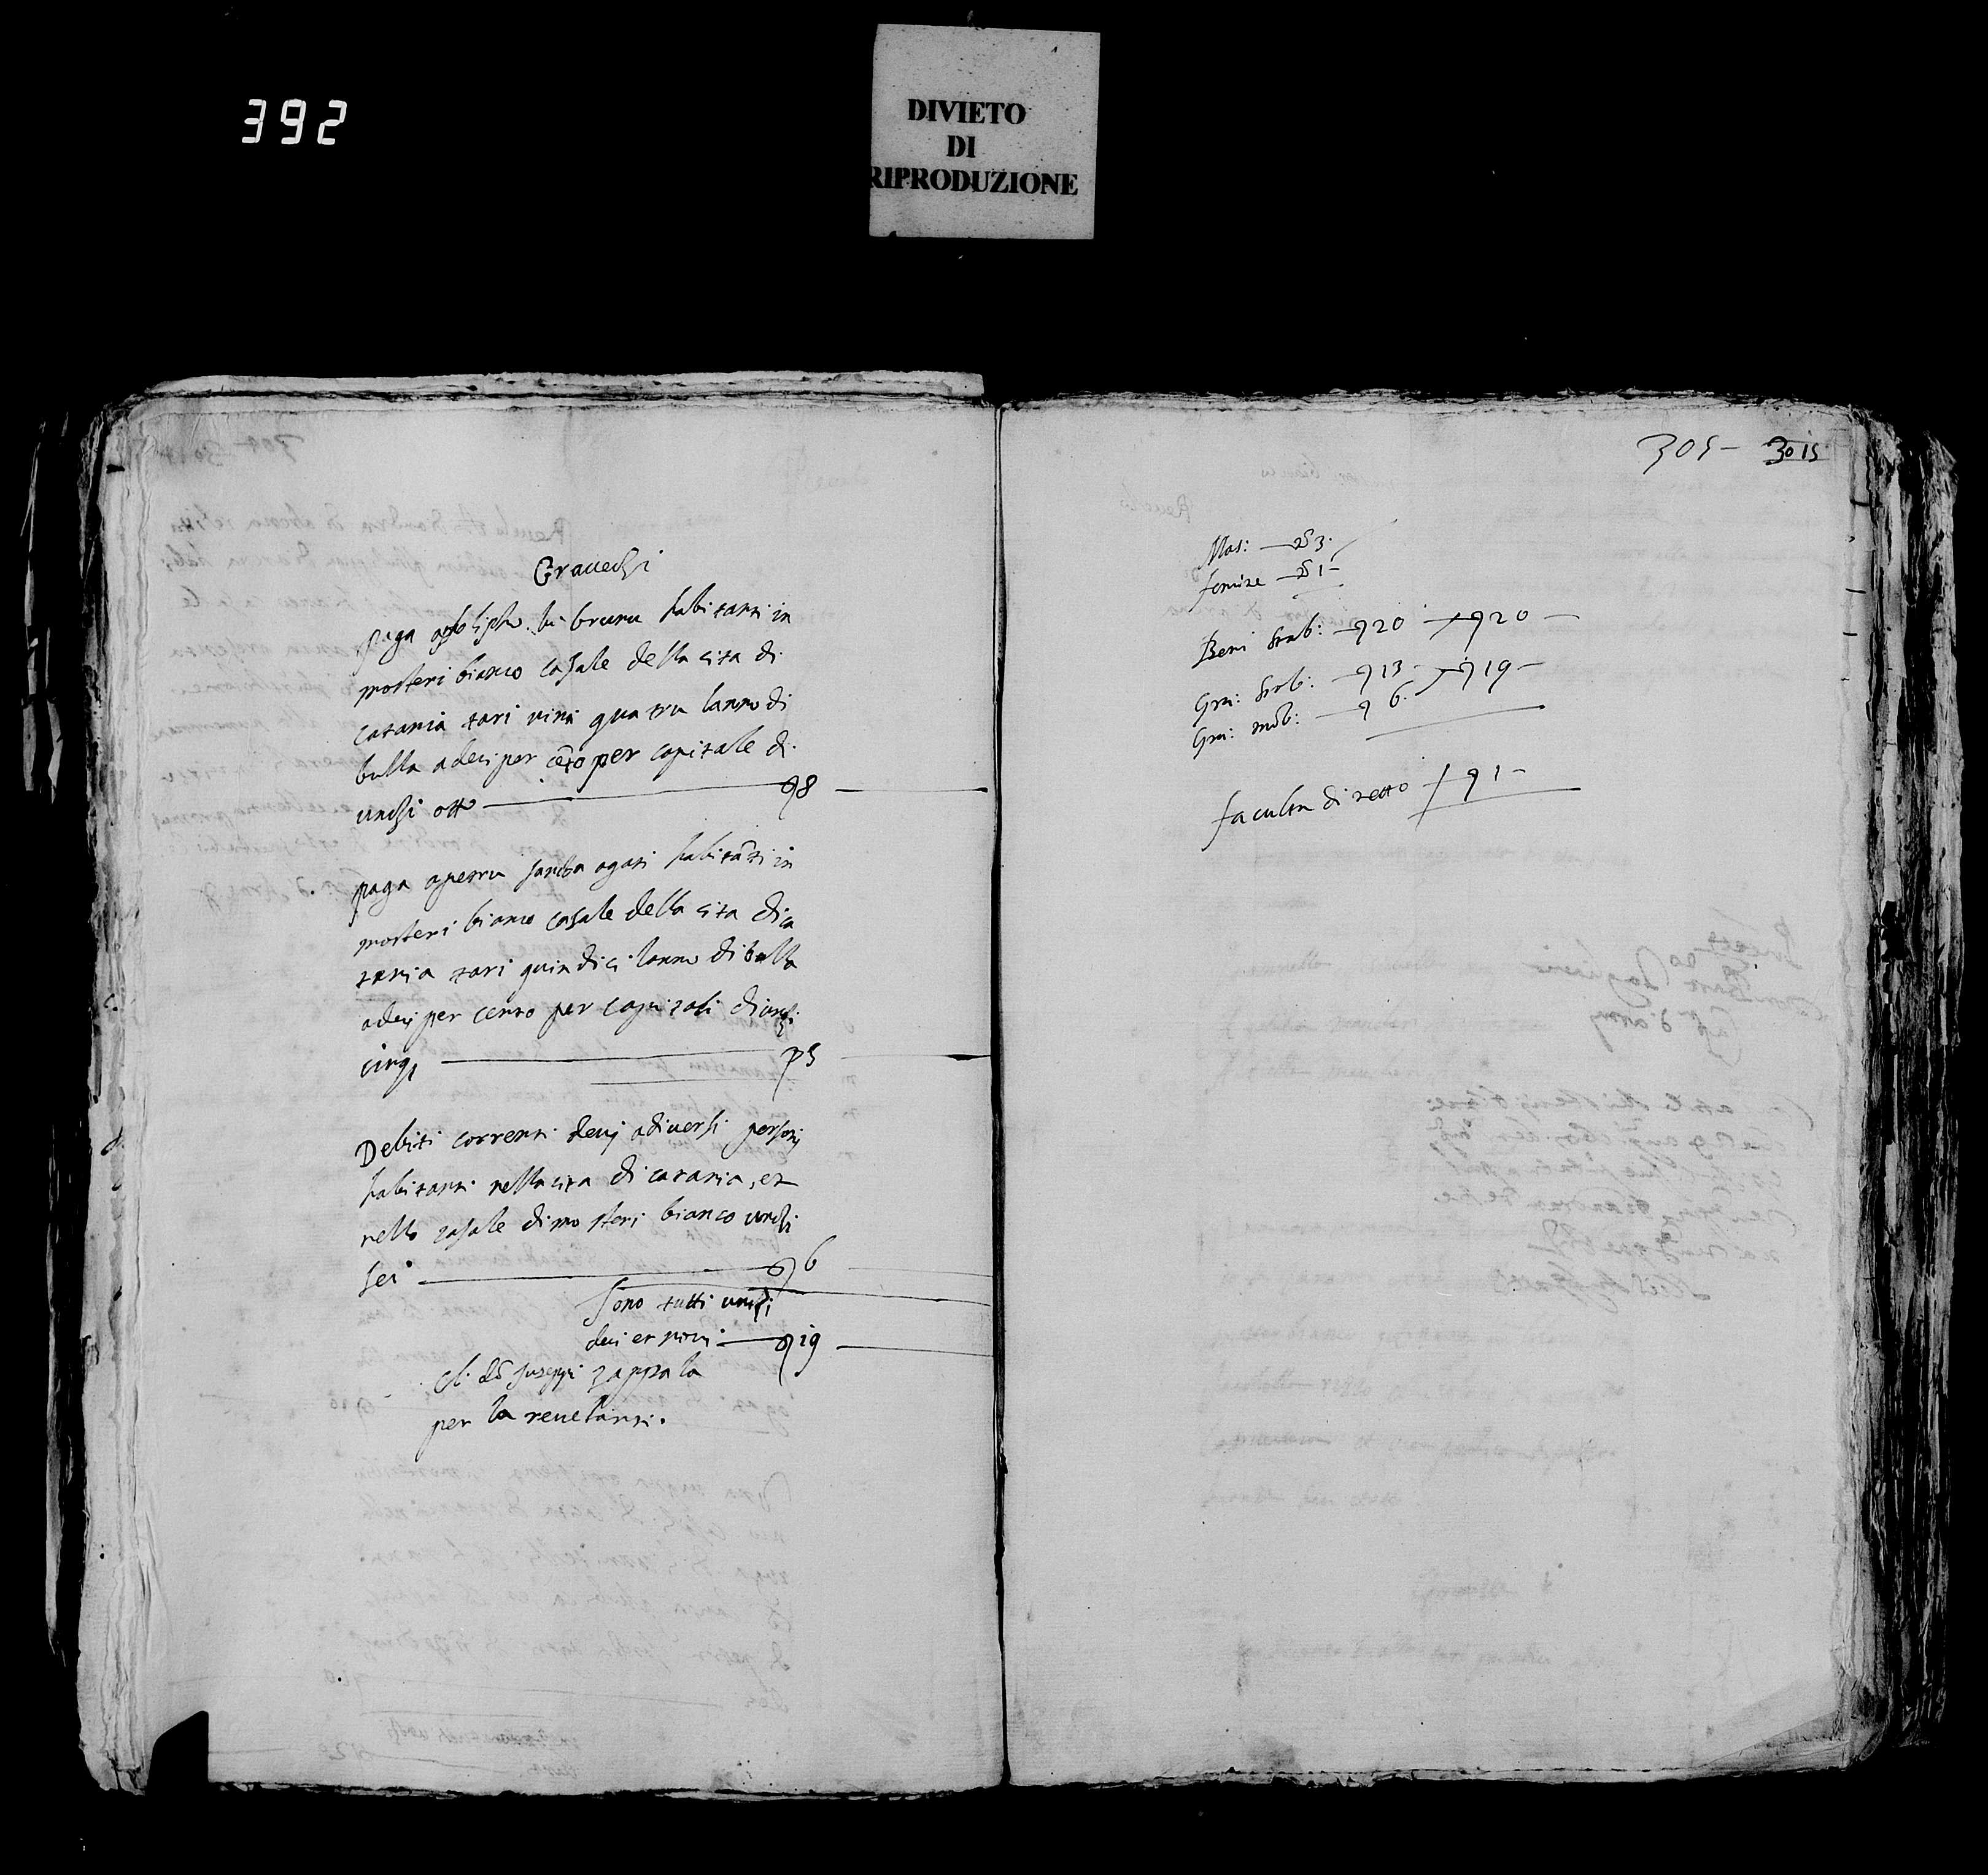 392
DIVIETO
DI
RIPRODUZIONE
Gravechi
paga lu brunu habitanti in
mosteri bianco casale della cita di
catania tari vinti quatru lanno di
bulla a deci per cēto per capitale di
unchi otto 8
paga a petru santa agati habitāti in
mosteri bianco casale della cita di ca
tania tari quindici lanno di bulla
a deci per cento per capitali di unchi
cinqi 5
Debiti correnti devi a diversi personi
habitanti nella cita di catania, et
nello casale di mosteri bianco unchi
sei 6
sono tutti unchi
deci et novi 19
Juseppi zappala
per la revelanti.
305 - 3015
Mas: 3.
femine 1
Beni stab: 20 20
Gra: stab: 13 19
Gra: mob: 6.
faculta di netto 1